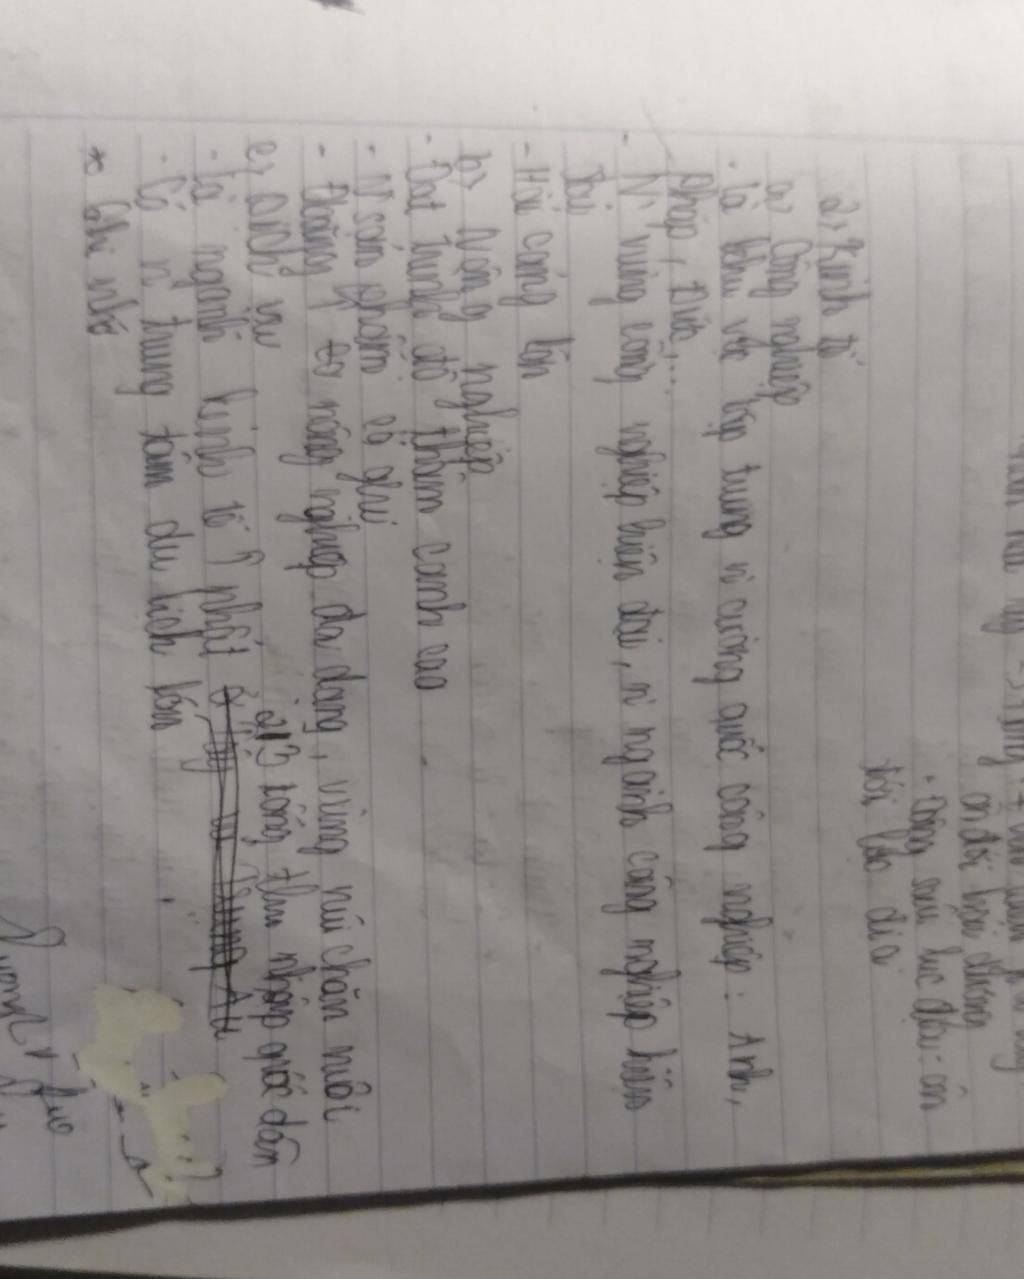 ôn đới hải dương
- Đông sau lục địa: ôn
đới lục địa
2, Kinh tế
a, Công nghiệp
- Là khu vực tập trung n' cường quốc công nghiệp: Anh,
Pháp, Đức,...
- N' vùng công nghiệp hiện đại, n' ngành công nghiệp hiện
đại
- Hải cảng lớn
b, Nông nghiệp
- Đạt trình độ thâm canh cao
- N' sản phẩm có giá
- Đồng = nông nghiệp đa dạng, vùng núi chăn nuôi
c, Dịch vụ
2/3 tổng thu nhập quốc dân
- Là ngành kinh tế nhất
- Có n' trung tâm du lịch lớn
* Ghi nhớ